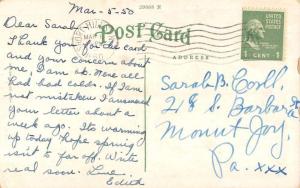 Mar-5-50
39868 N
Dear Sarah
Thank you for the card
and your concern about
me, I am ok. We're all
had bad colds. If I am
not mistaken I answered
your letter about a
week ago. Its warming
up today hope spring
isn't to far off. Write
real soon. Love
Edith
Post Card
ADDRESS
1 CENT 1
Sarah B. Coll.
21 E S Barbara St
Mount Joy,
Pa. xxx